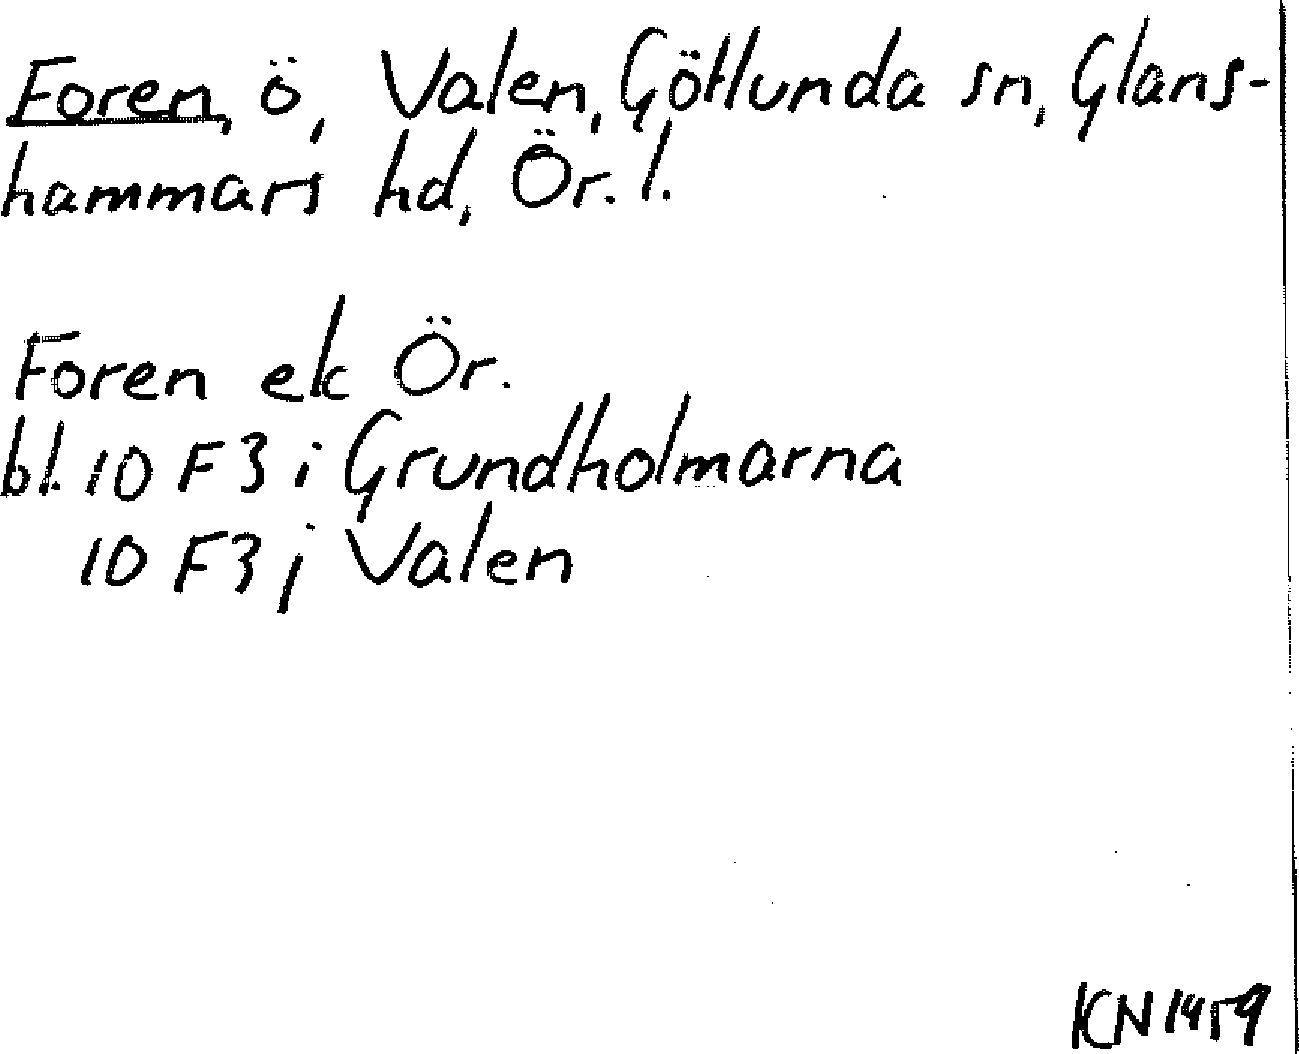 Foren, ö, Valen, Götlunda sn, Glans-
hammars hd, Ör. l.
Foren ek Ör.
bl. 10 F 3 i Grundholmarna
10 F 3 j Valen
KN 1459